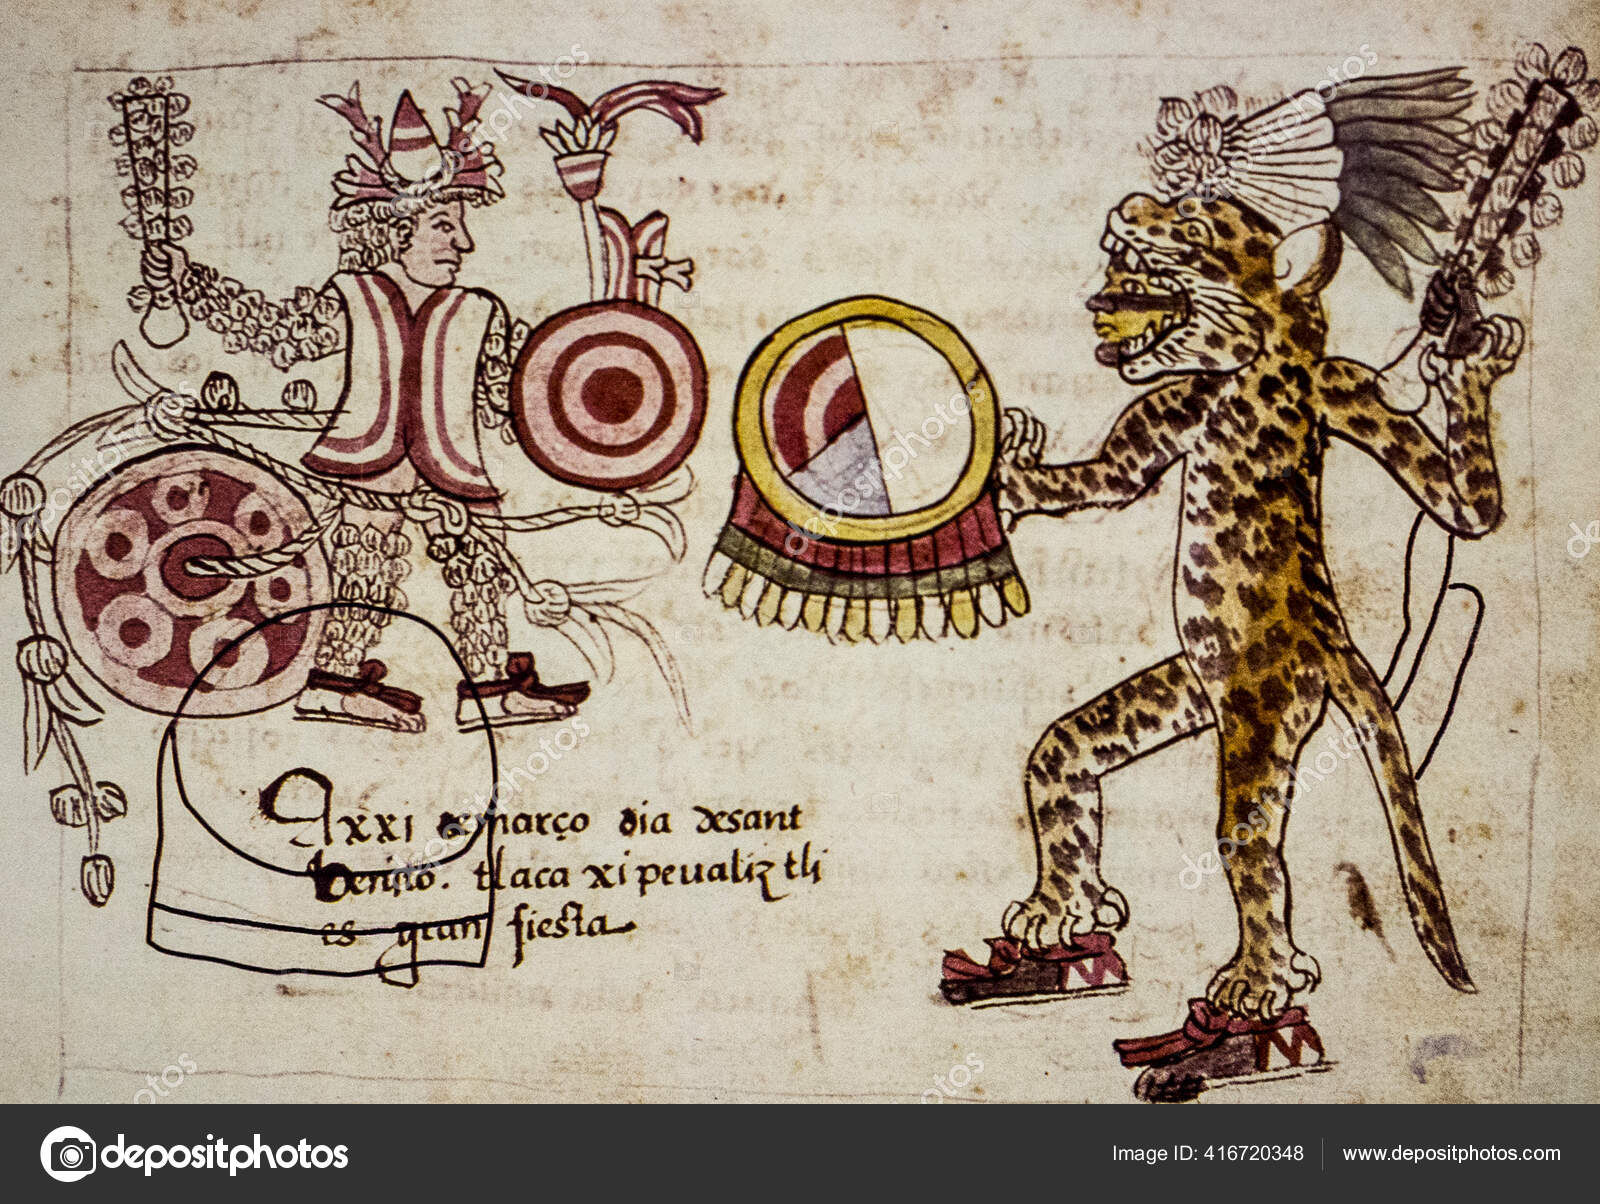 A xxi de março dia de sant
benito. tlaca xi peualiztli
es gran fiesta
depositphotos
Image ID: 416720348
www.depositphotos.com